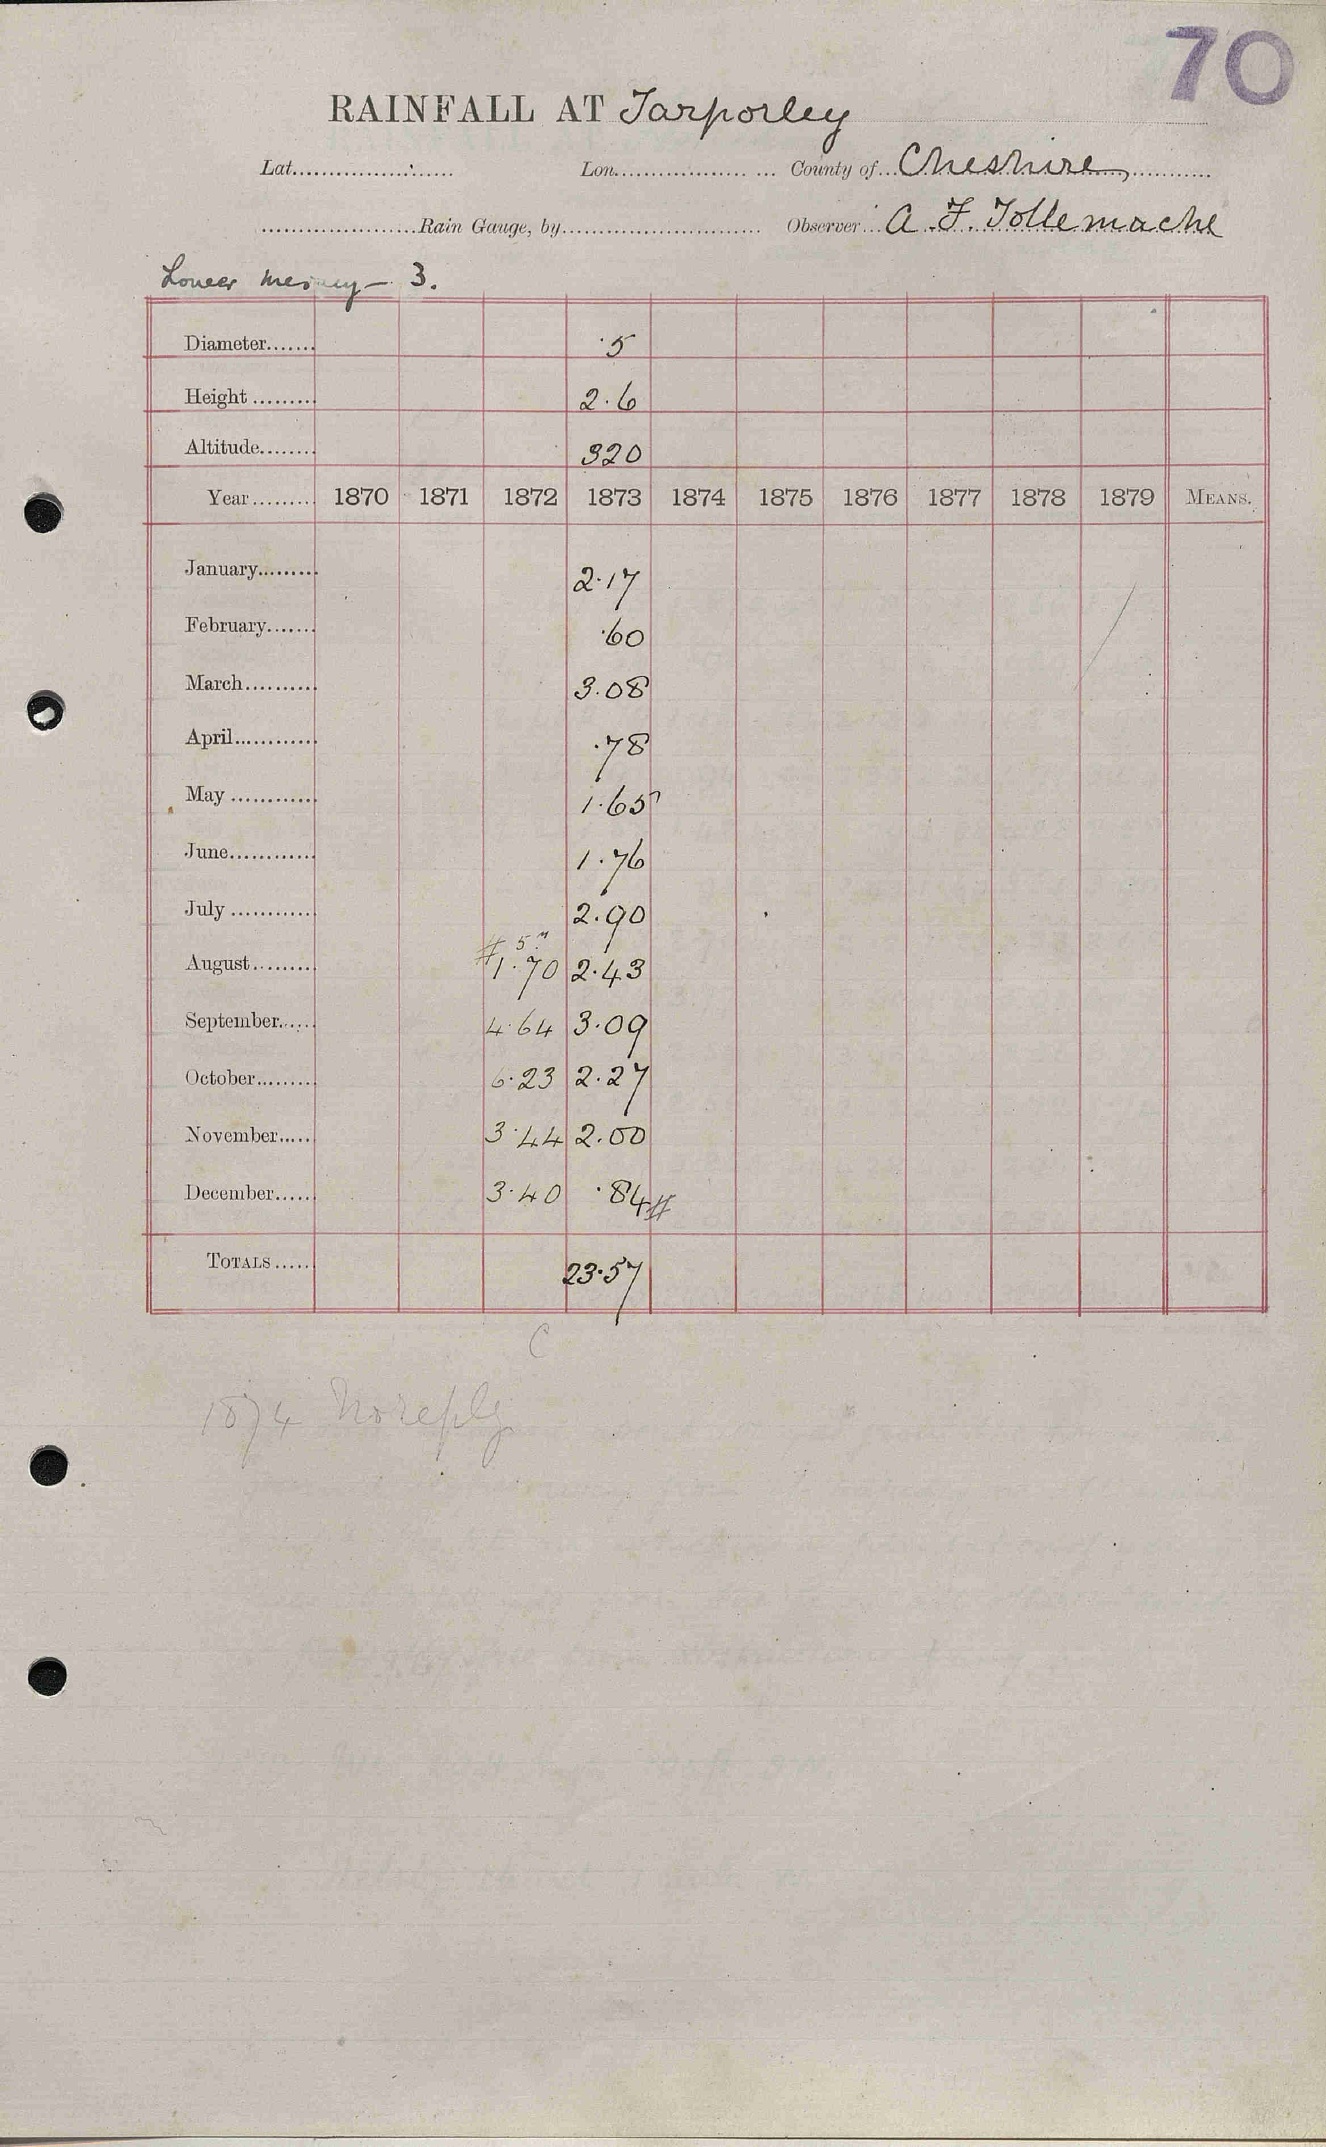 70
RAINFALL AT Tarporley
Lat. Lon. County of Cheshire
Rain Gauge, by Observer A. F. Tollemache
Lower Mersey — 3.
Diameter ·5
Height 2·6
Altitude 320
Year 1870 1871 1872 1873 1874 1875 1876 1877 1878 1879 MEANS.
January 2·17
February ·60
March 3·08
April ·78
May 1·65
June 1·76
July 2·90
# 5 m
August 1·70 2·43
September 4·64 3·09
October 6·23 2·27
November 3·44 2·00
December 3·40 ·84 #
TOTALS 23·57
C
1874 No reply